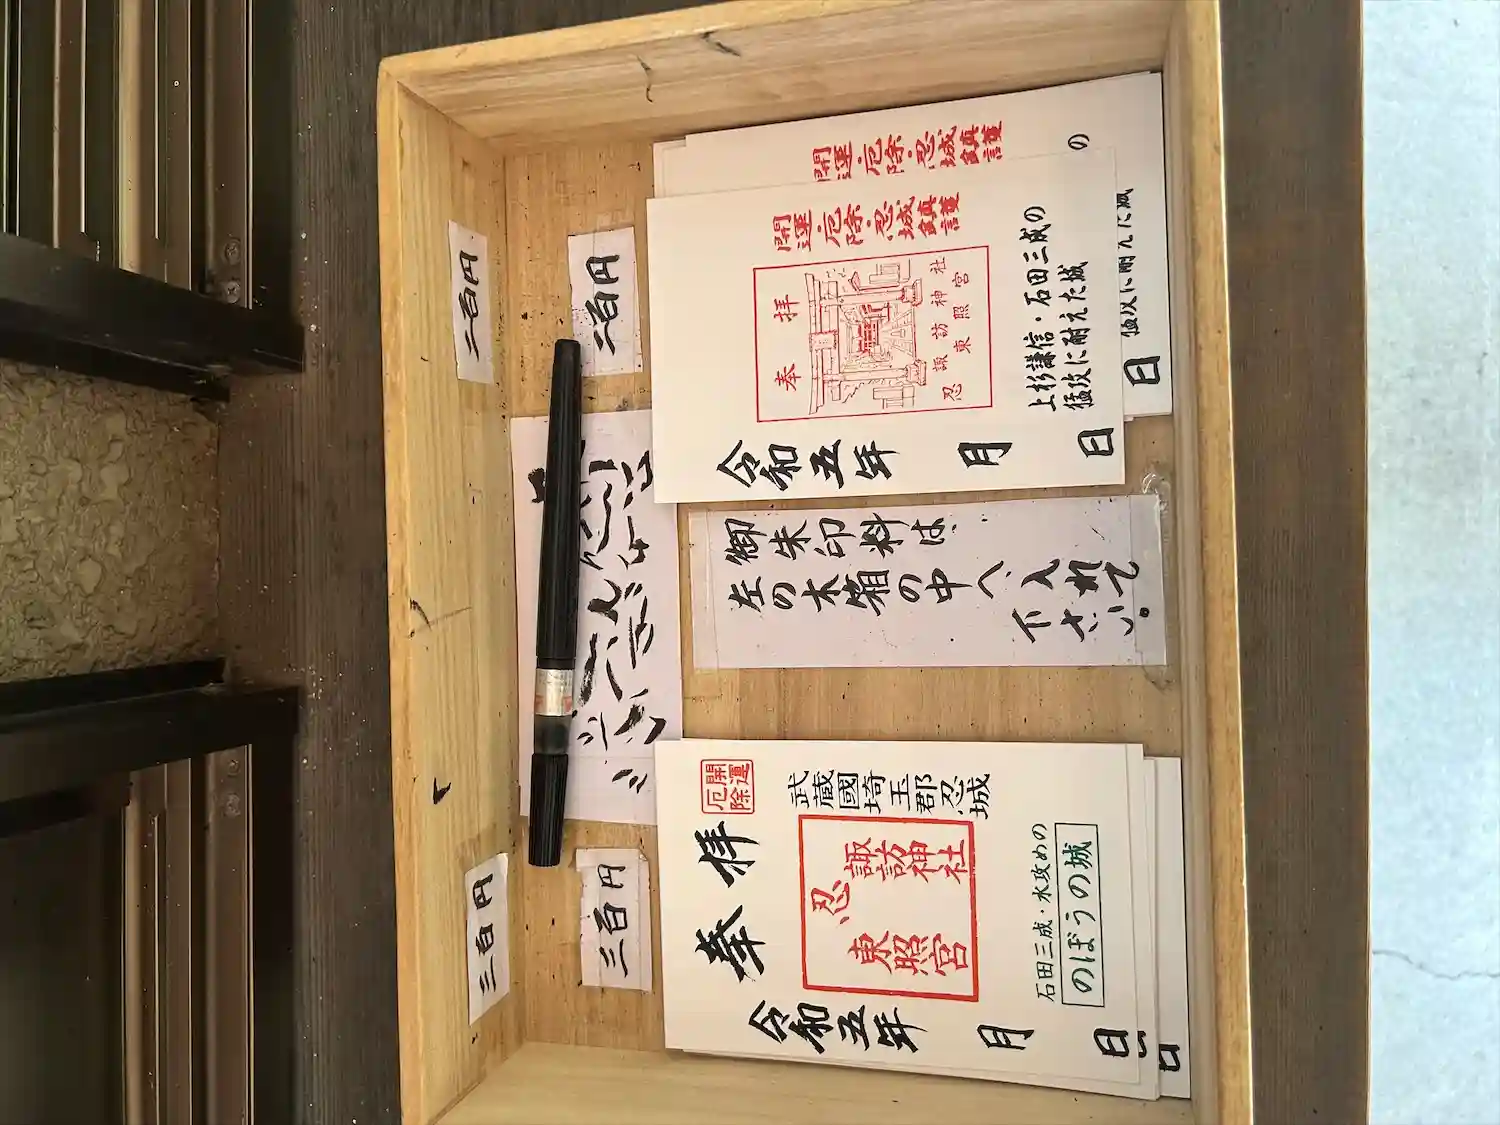 二百円
二百円
開運・厄除・忍城鎮護
の
猛攻に耐えた城
日
開運・厄除・忍城鎮護
奉拝
忍
諏訪神社
東照宮
上杉謙信・石田三成の
猛攻に耐えた城
令和五年 月 日
御朱印料は、
左の木箱の中へ、
入れて
下さい。
三百円
三百円
開運
厄除
奉拝
武蔵國埼玉郡忍城
忍
諏訪神社
東照宮
石田三成・水攻めの
のぼうの城
令和五年 月 日
日
日